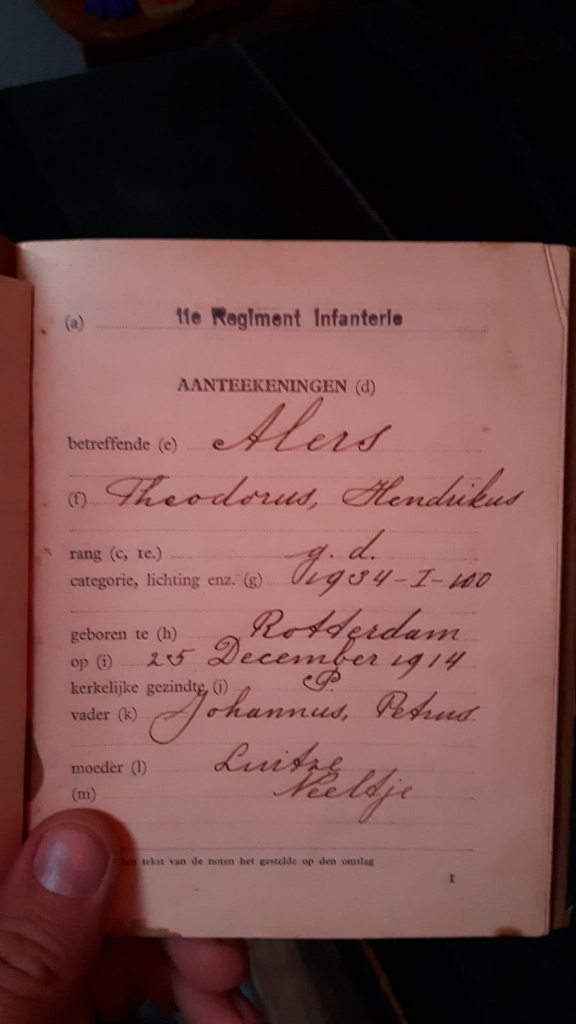 (a) 11e Regiment Infanterie
AANTEEKENINGEN (d)
betreffende (e) Alers
(f) Theodorus, Hendrikus
rang (c, 1e.) g. d.
categorie, lichting enz. (g) 1934-I-100
geboren te (h) Rotterdam
op (i) 25 December 1914
kerkelijke gezindte (j) P.
vader (k) Johannus, Petrus
moeder (l) Luitze
(m) Neeltje
tekst van de noten het gestelde op den omslag
1